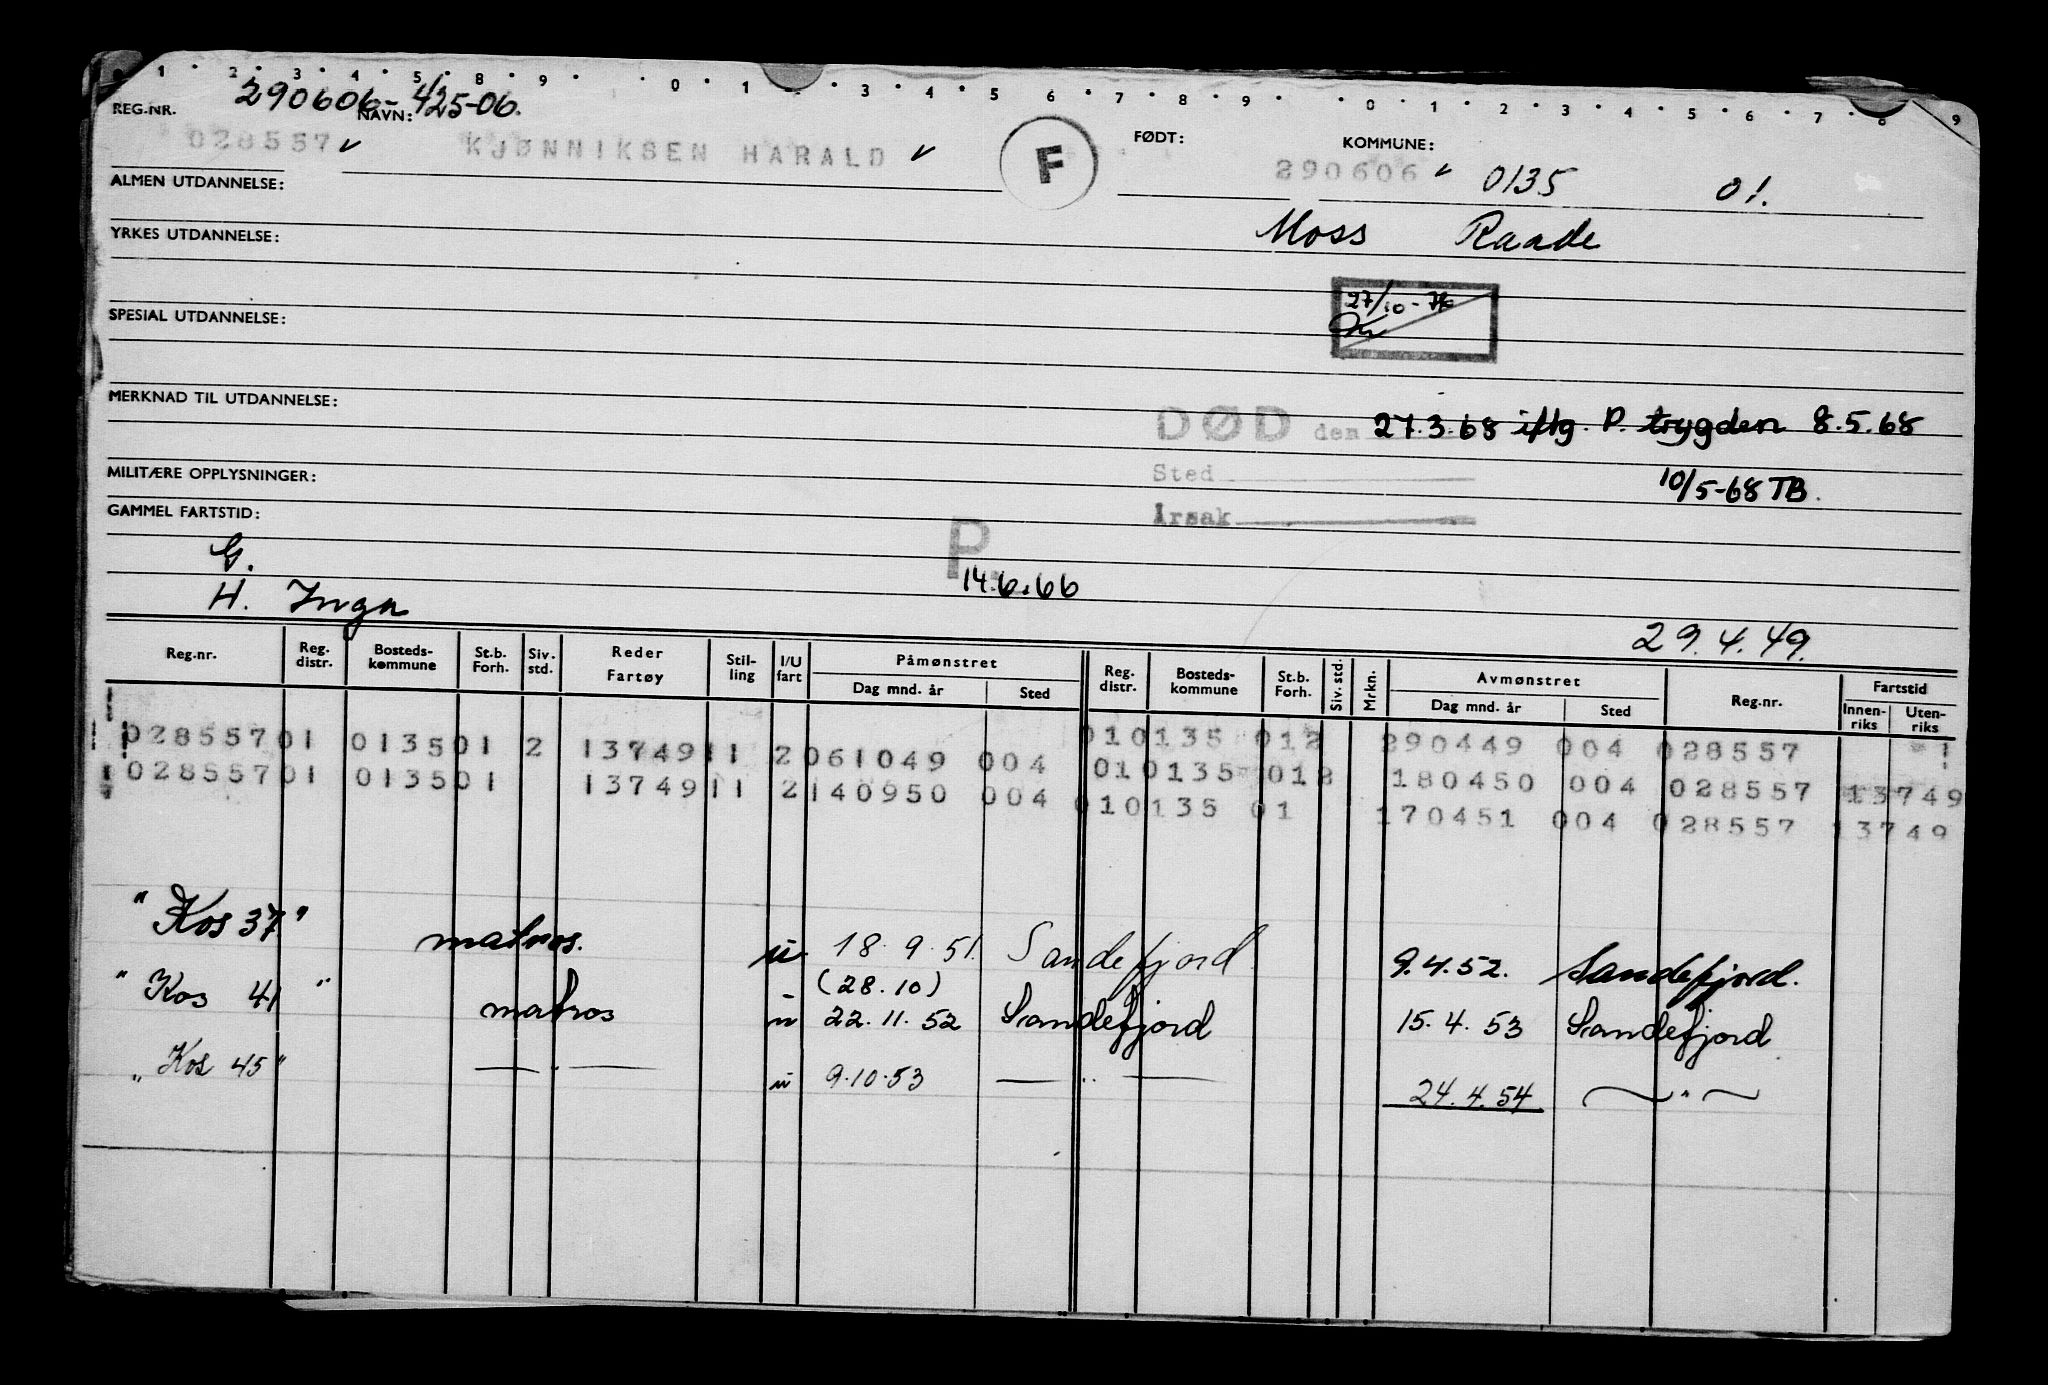 1 · 2 · 3 · 4 · 5 · 8 · 9 · · 0 · 1 · 3 · 4 · 5 · 6 · 7 · 8 · 9 · · 0 · 1 · 2 · 3 · 4 · 5 · 6 · 7 · 8 · 9
REG.NR. 290606- 425-06.
NAVN: FØDT: KOMMUNE:
028557 ✓ KJØNNIKSEN HARALD ✓ F 290606 ✓ 0135 01.
ALMEN UTDANNELSE:
Moss Raade
YRKES UTDANNELSE:
27/10-76
SPESIAL UTDANNELSE:
MERKNAD TIL UTDANNELSE:
DØD den 27.3.68 iflg. P. trygden 8.5.68
Sted
10/5-68 TB.
MILITÆRE OPPLYSNINGER:
Årsak
GAMMEL FARTSTID:
P.
G.
14.6.66
H. Inga
29.4.49.
Reg.nr. Reg. distr. Bosteds- kommune St.b. Forh. Siv. std. Reder Fartøy Stil- ling I/U fart Påmønstret Dag mnd. år Sted Reg. distr. Bosteds- kommune St.b. Forh. Siv. std. Mrkn. Avmønstret Dag mnd. år Sted Reg.nr. Fartstid Innen- riks Uten- riks
010135 012 290449 004 028557
028557 01 0135 01 2 13749 11 2 061049 004 010135 012 180450 004 028557 13749
028557 01 0135 01 13749 11 2 140950 004 010135 01 170451 004 028557 13749
"Kos 37" matros. u. 18.9.51. Sandefjord 9.4.52. Sandefjord.
(28.10)
"Kos 41" matros u 22.11.52 Sandefjord 15.4.53 Sandefjord
"Kos 45" — . — u 9.10.53 — .. — 24.4.54 — " —